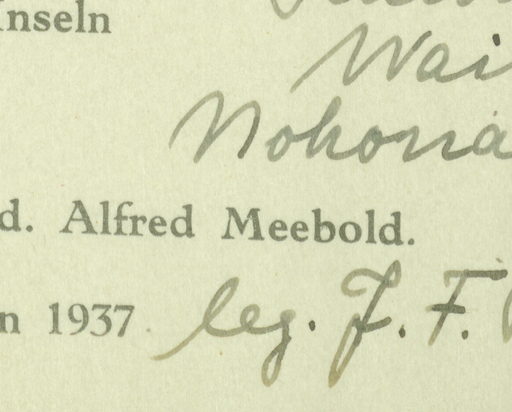 Inseln
Wai
Nohona
d. Alfred Meebold.
n 1937 leg. J. F.